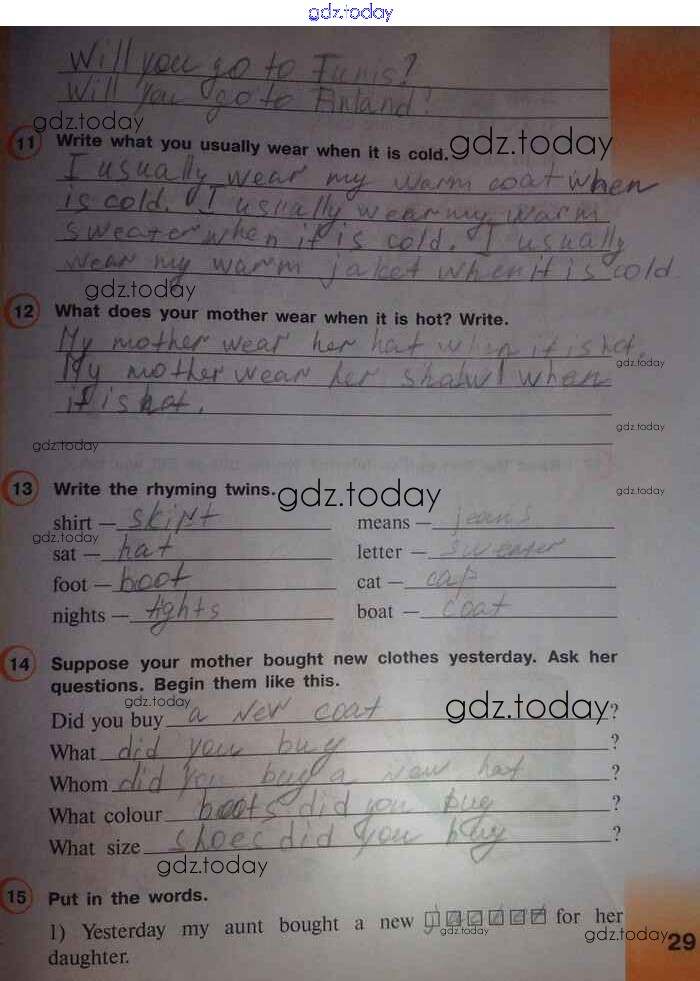 gdz.today
Will you go to Tunis?
Will you go to Finland?
gdz.today
11 Write what you usually wear when it is cold. gdz.today
I usually wear my warm coat when
is cold. I usually wear my warm
sweater when it is cold. I usually
wear my warm jaket when it is cold.
gdz.today
12 What does your mother wear when it is hot? Write.
My mother wear her hat when it is hot.
gdz.today
My mother wear her shawl when
it is hot.
gdz.today
gdz.today
13 Write the rhyming twins. gdz.today gdz.today
shirt — skirt means — jeans
gdz.today
sat — hat letter — sweater
foot — boot cat — cap
nights — tights boat — coat
14 Suppose your mother bought new clothes yesterday. Ask her
questions. Begin them like this.
gdz.today
Did you buy a new coat gdz.today ?
What did you buy ?
Whom did you buy a new hat ?
What colour boots did you buy ?
What size shoes did you buy ?
gdz.today
15 Put in the words.
1) Yesterday my aunt bought a new for her
gdz.today gdz.today
daughter.
29